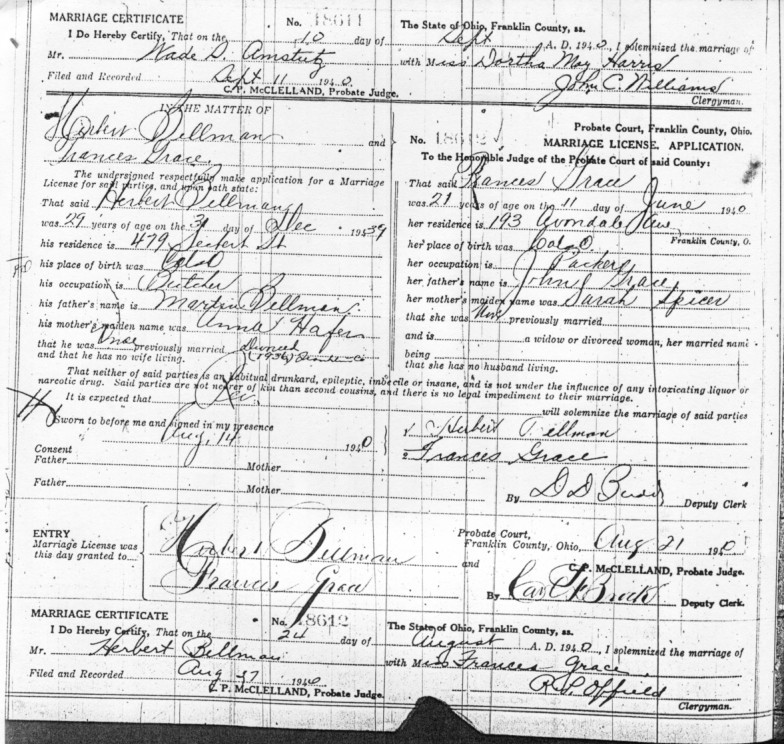 MARRIAGE CERTIFICATE No. 18611
I Do Hereby Certify, That on the 10 day of Sept A. D. 1940, I solemnized the marriage of
The State of Ohio, Franklin County, ss.
Mr. Wade D. Amstutz with Miss Dortha May Harris
Filed and Recorded Sept 11 1940. John C. Williams
C. P. McCLELLAND, Probate Judge. Clergyman.
IN THE MATTER OF
Herbert Billman and
Frances Grace
The undersigned respectfully make application for a Marriage
License for said parties, and upon oath state:
That said Herbert Billman
was 29 years of age on the 31 day of Dec 1939
his residence is 479 Seifert St
his place of birth was Col O
his occupation is Butcher
his father's name is Martin Billman
his mother's maiden name was Anna Hafer
that he was Once previously married Divorced
and that he has no wife living. (1936)
Probate Court, Franklin County, Ohio.
No. 18612 MARRIAGE LICENSE, APPLICATION.
To the Honorable Judge of the Probate Court of said County:
That said Frances Grace
was 21 years of age on the 11 day of June 1940
her residence is 193 Avondale Ave
Franklin County, O.
her place of birth was Col O
her occupation is Packer
her father's name is John Grace
her mother's maiden name was Sarah Spicer
that she was Not previously married
and is a widow or divorced woman, her married name
being
that she has no husband living.
That neither of said parties is an habitual drunkard, epileptic, imbecile or insane, and is not under the influence of any intoxicating liquor or
narcotic drug. Said parties are not nearer of kin than second cousins, and there is no legal impediment to their marriage.
It is expected that will solemnize the marriage of said parties
Sworn to before me and signed in my presence Herbert Billman
Aug. 14 1940 Frances Grace
Consent
Father Mother
Father Mother By D D Budd Deputy Clerk
ENTRY
Marriage License was
this day granted to
Herbert Billman and
Frances Grace
Probate Court,
Franklin County, Ohio, Aug 21 1940
C. P. McCLELLAND, Probate Judge.
By Deputy Clerk.
MARRIAGE CERTIFICATE No. 18612
The State of Ohio, Franklin County, ss.
I Do Hereby Certify, That on the 24 day of August A. D. 1940, I solemnized the marriage of
Mr. Herbert Billman with Miss Frances Grace
Filed and Recorded Aug 27 1940 R. P. Offield
C. P. McCLELLAND, Probate Judge. Clergyman.